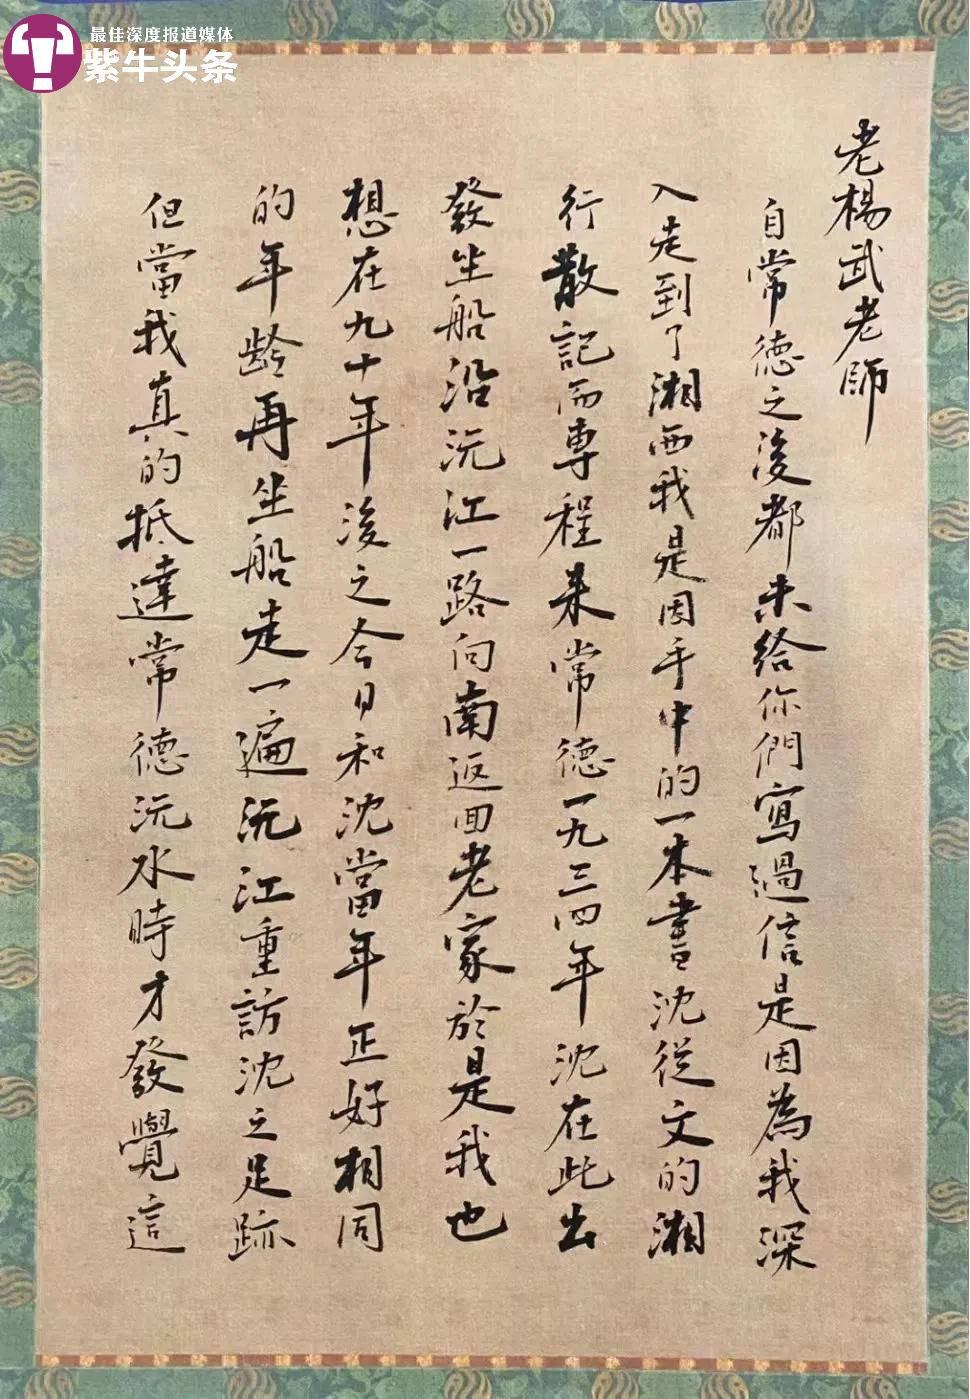 最佳深度报道媒体
紫牛头条
老楊武老師
自常德之後都未給你們寫過信是因為我深
入走到了湘西我是因手中的一本書沈從文的湘
行散記而專程来常德一九三四年沈在此出
發坐船沿沅江一路向南返回老家於是我也
想在九十年後之今日和沈當年正好相同
的年龄再坐船走一遍沅江重訪沈之足跡
但當我真的抵達常德沅水時才發覺這